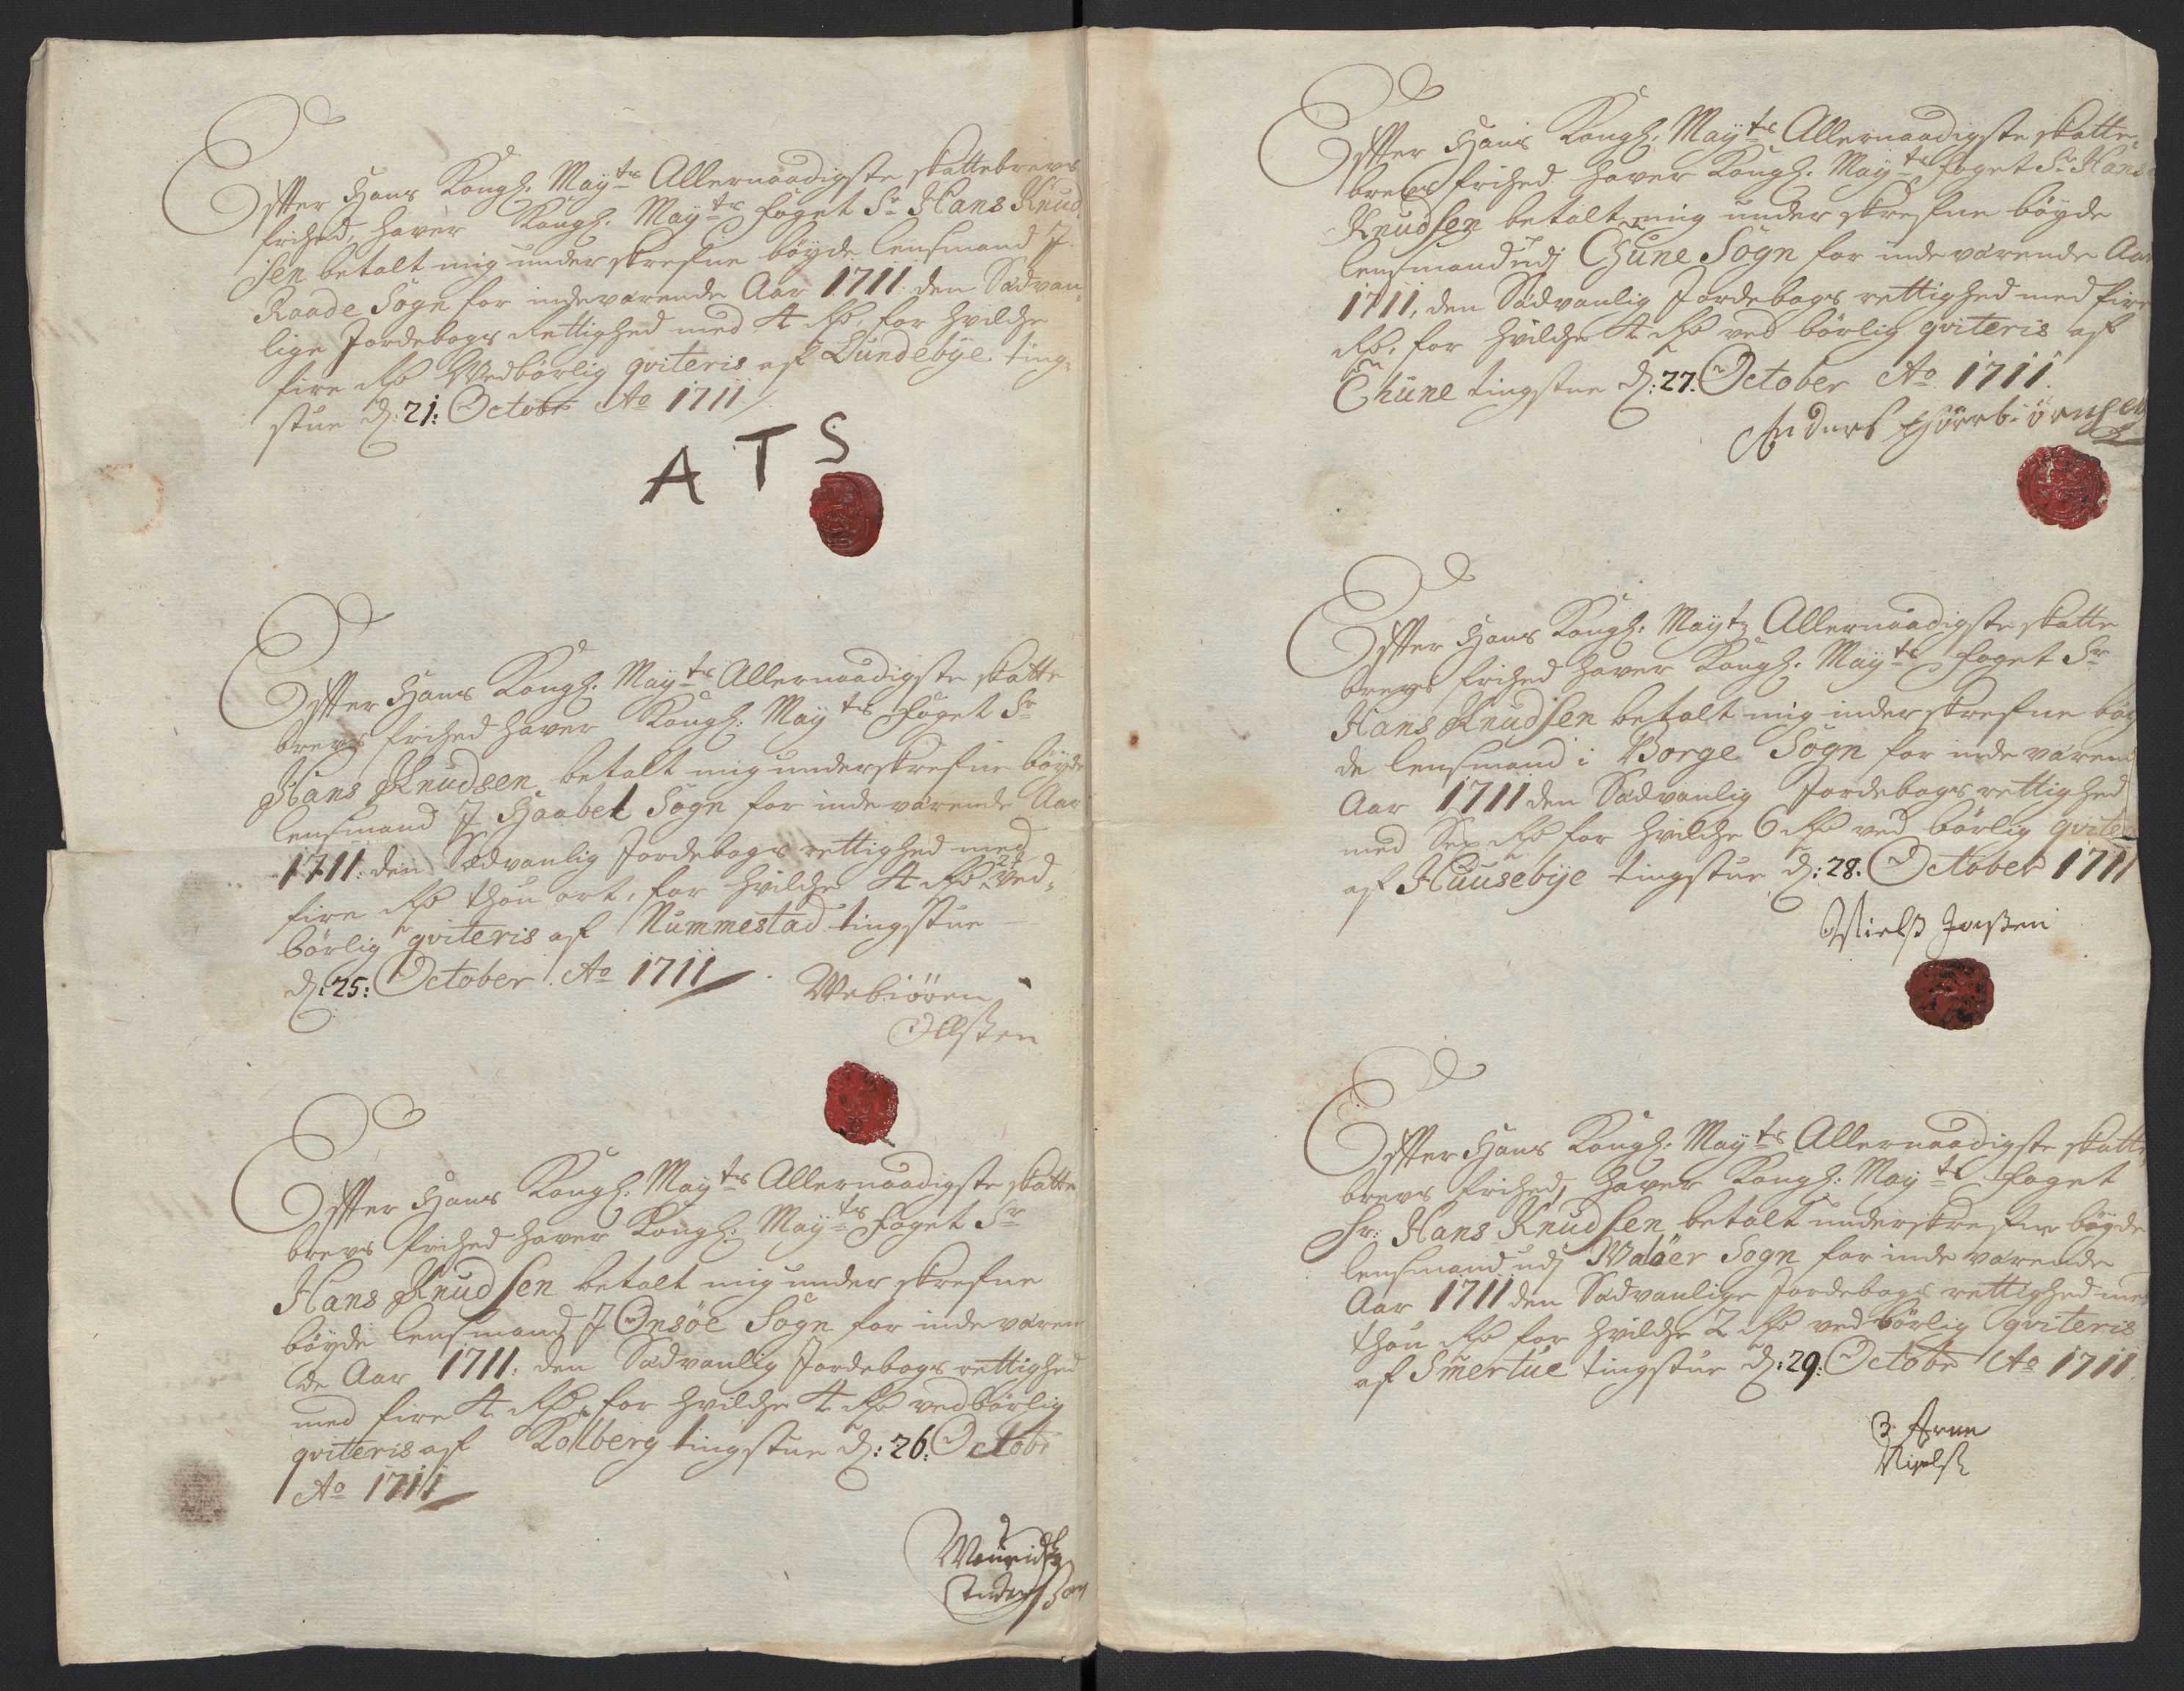 Effter Hans Kongl. Mayts Allernaadigste skattebrevs
frihed, haver Kongl. Mayts foget Sr Hans Knud-
sen betalt mig underskrefne böyde lensmand J
Raade Sogn for indeværende Aar 1711. den Sædvan-
lige Jordebogs Rettighed med 4 Rd. for hvilche
fire Rd Vedbørlig qviteris af Lundebÿe ting-
stue d: 21: Octobr Ao 1711
A T S
Effter Hans Kongl. Mayts Allernaadigste skatte
brevs frihed haver Kongl: Mayts foget Sr
Hans Knudsen betalt mig underskrefne böyde
lensmand J Haabel Sogn for indeværende Aar
1711. den Sædvanlig Jordebogs rettighed med
fire Rd for hvilche 4 Rd ved-
börlig qviteris af Nummestad tingstue
d: 25: October Ao 1711
Webiören
Ollsen
Effter Hans Kongl. Mayts Allernaadigste skatte
brevs frihed haver Kongl: Mayts foget Sr
Hans Knudsen betalt mig under skrefne
böyde lensmand J Onsöe Sogn for indeværen
de Aar 1711. den Sædvanlig Jordebogs rettighed
med fire 4 Rd, for hvilche 4 Rd vedbörlig
qviteris af Kollberg tingstue d: 26: Octobr
Ao 1711
Effter Hans Kongl. Mayts Allernaadigste skatte-
brevs frihed haver Kongl. Mayts foget Sr Hans
Knudsen betalt mig under skrefne böyde
lensmand udj Thune Sogn for inde værende Aar
1711, den Sædvanlig Jordebogs rettighed med fire
Rd. for hvilche 4 Rd ved börlig qviteris af
Thune tingstue d: 27. October Ao 1711.
Anders thörrbiörnsen
Effter Hans Kongl. Maytz Allernaadigste skatte
brevs frihed haver Kongl. Mayts foget Sr
Hans Knudsen betalt mig underskrefne böy
de lensmand i Borge Sogn for inde væren
Aar 1711 den Sædvanlig Jordebogs rettighed
med Sex Rd for hvilche 6 Rd ved börlig qviter
af Huusebÿe tingstue d: 28. October 1711
Nielß Jenßen
Effter Hans Kongl. Mayts Allernaadigste skatte
brevs frihed, haver Kongl: Mayts foget
Sr: Hans Knudsen betalt underskrefne böyde
lensmand udj Waläer Sogn for inde værende
Aar 1711 den Sædvanlige Jordebogs rettighed med
thou Rd for hvilche 2 Rd ved börlig qviteris
af Smertue tingstue d: 29: Octobr Ao 1711.
Arne
Nielsß